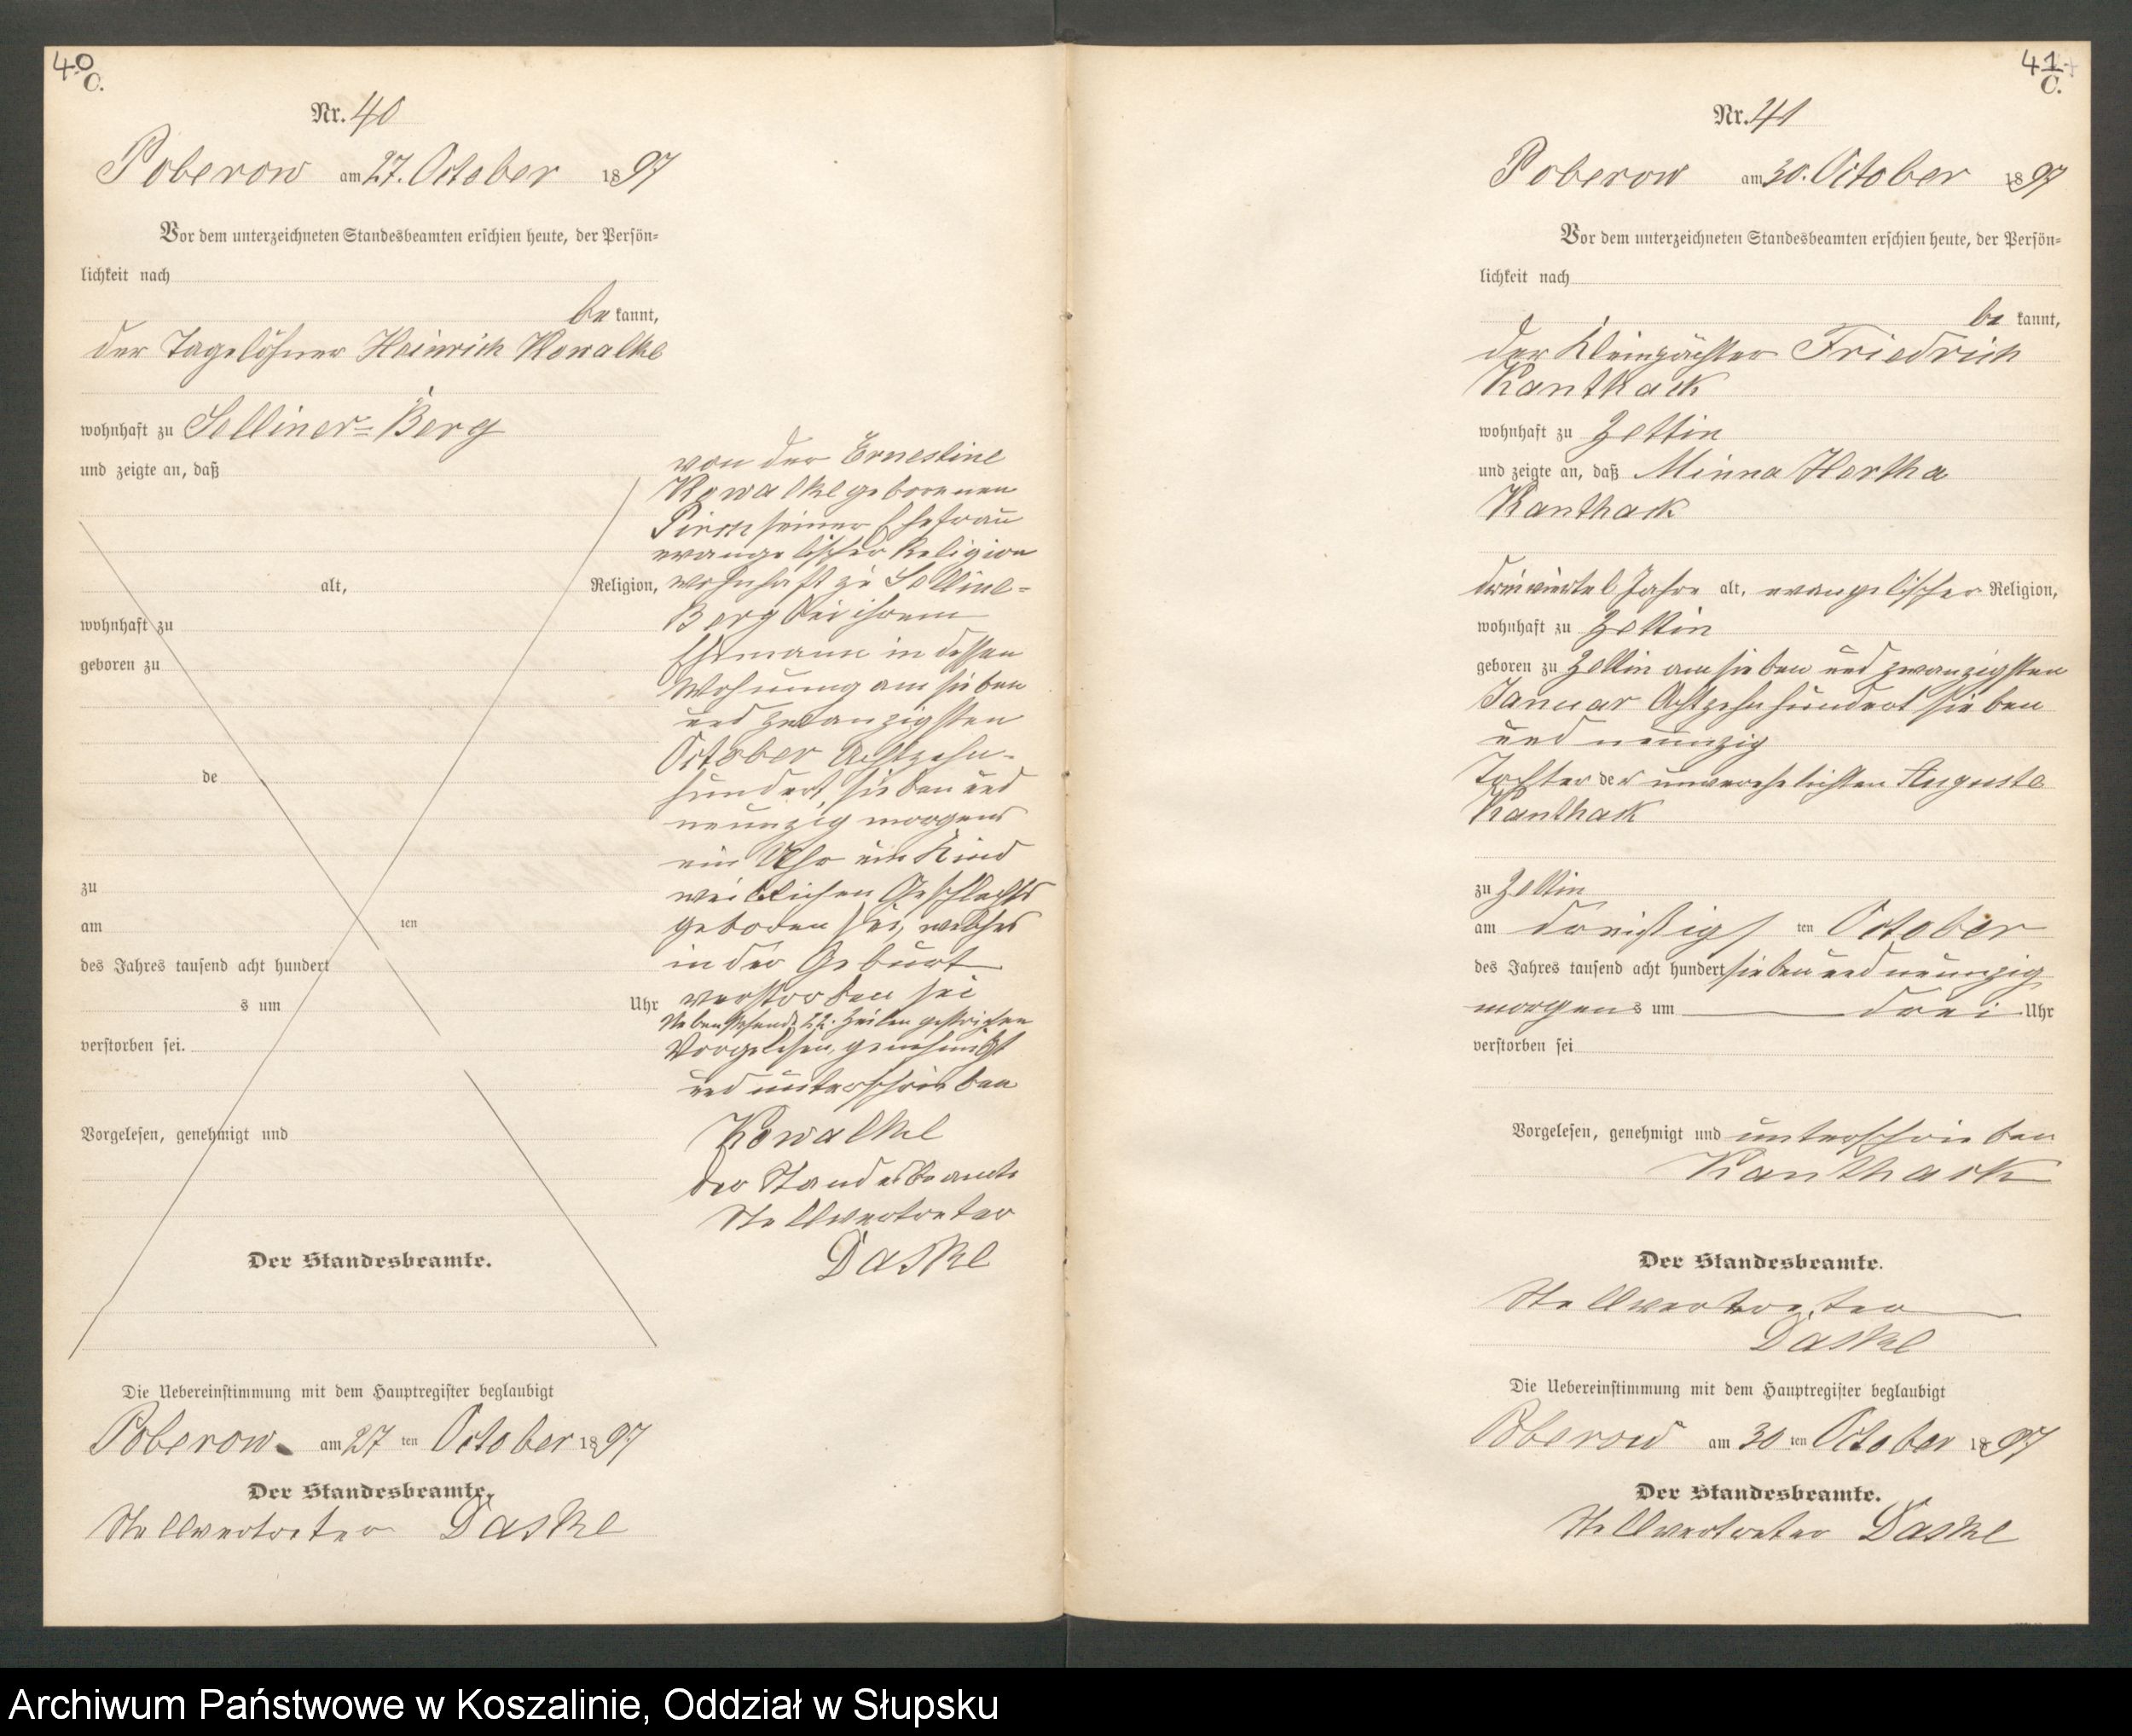 40
C.
Nr. 40
Poberow am 27. October 1897
Vor dem unterzeichneten Standesbeamten erschien heute, der Persön-
lichkeit nach
be kannt,
der Tagelöhner Heinrich Kowalke
wohnhaft zu Selliner-Berg
und zeigte an, daß
alt, Religion,
wohnhaft zu
geboren zu
de
zu
am ten
des Jahres tausend acht hundert
s um Uhr
verstorben sei.
Vorgelesen, genehmigt und
Der Standesbeamte.
von der Ernestine
Kowalke geborenen
Pirch seiner Ehefrau
evangelischer Religion
wohnhaft zu Selline-
Berg bei ihrem
Ehemann in dessen
Wohnung am sieben
und zwanzigsten
October Achtzehn-
hundert sieben und
neunzig morgens
ein Uhr ein Kind
weiblichen Geschlechts
geboren sei, welches
in der Geburt
verstorben sei
Nebenstehende 22. Zeilen gestrichen
Vorgelesen, genehmigt
und unterschrieben
Kowalke
der Standesbeamte
Stellvertreter
Daske
Die Uebereinstimmung mit dem Hauptregister beglaubigt
Poberow. am 27 ten October 1897
Der Standesbeamte.
Stellvertreter Daske
41
C.
Nr. 41
Poberow am 30. October 1897
Vor dem unterzeichneten Standesbeamten erschien heute, der Persön-
lichkeit nach
be kannt,
der Kleinpächter Friedrich
Kanthack
wohnhaft zu Zettin
und zeigte an, daß Minna Hertha
Kanthack
dreiviertel Jahre alt, evangelischer Religion,
wohnhaft zu Zettin
geboren zu Zettin am sieben und zwanzigsten
Januar Achtzehnhundert sieben
und neunzig
Tochter der unverehelichten Auguste
Kanthak
zu Zettin
am dreißigs ten October
des Jahres tausend acht hundert sieben und neunzig
morgens um drei Uhr
verstorben sei
Vorgelesen, genehmigt und unterschrieben
Kanthack
Der Standesbeamte.
Stellvertreter
Daske
Die Uebereinstimmung mit dem Hauptregister beglaubigt
Poberow am 30 ten October 1897
Der Standesbeamte.
Stellvertreter Daske
Archiwum Państwowe w Koszalinie, Oddział w Słupsku